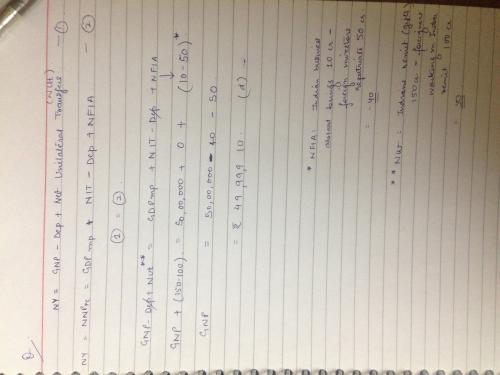 Q.
NY = GNP - Dep + Net Unilateral Transfers (NUt) — ①
NY = NNPFC = GDP mp + NIT - Dep + NFIA — ②
① = ②
GNP - Dep + Nut** = GDP mp + NIT - Dep + NFIA
GNP + (150-100) = 50,00,000 + 0 + (10-50)*
GNP = 50,00,000 - 40 - 50
= ₹ 49,99,910. (d) →
* NFIA: Indian
abroad brings 10 cr -
foreign
repatriate 50 cr
= - 40
** Nut : Indians remit (gift)
150 cr - foreigners
working in India
remit 100 cr
= 50